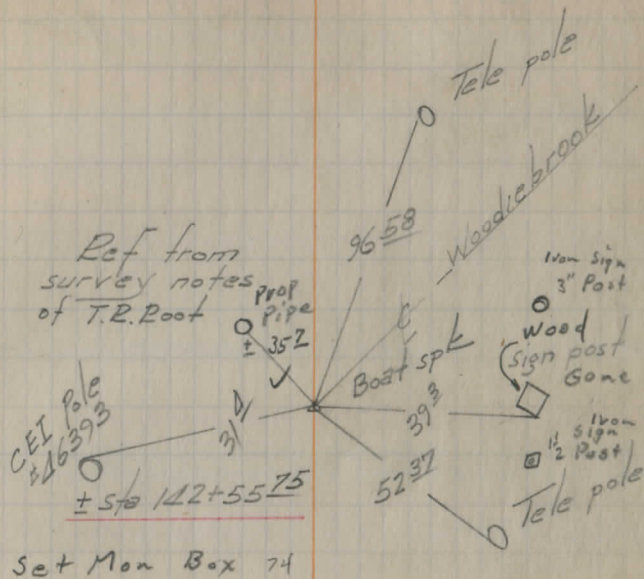 Tele pole
96 58
Woodiebrook
Ref from
survey notes
of T.R. Root
Prop
Pipe
± 35 2
Iron Sign
3" Post
Wood
Sign post
Gone
C
Boat spk
39 3
CEI Pole
31
1 1/2 Iron
Sign
Post
52 37
Tele pole
± sta 142+55 75
Set Mon Box 74